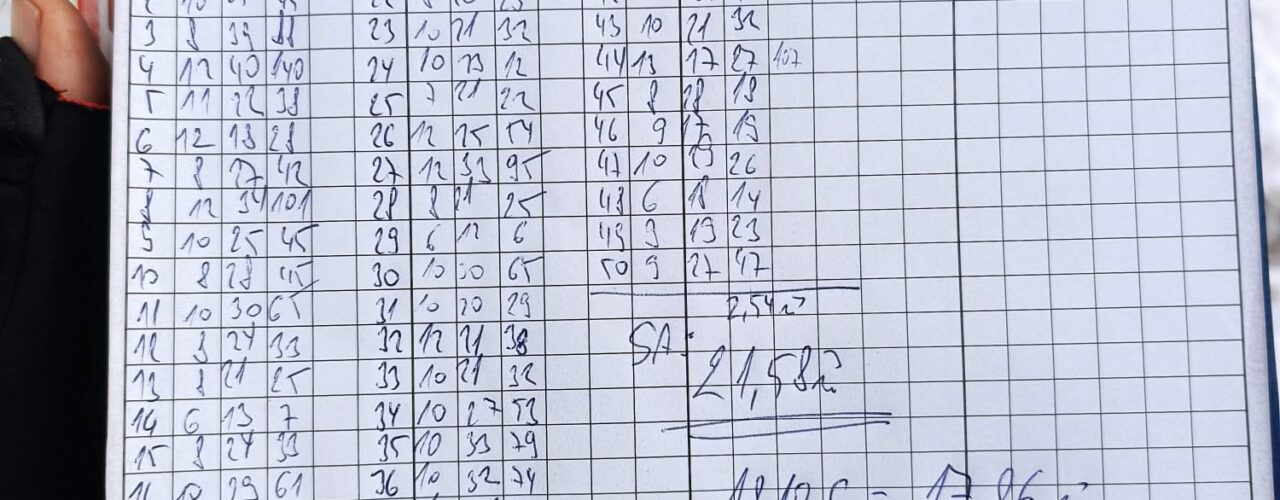 3 8 39 88 23 10 21 32 43 10 21 32
4 12 40 140 24 10 13 12 44 13 17 27 107
5 11 22 38 25 7 21 22 45 8 18 18
6 12 18 28 26 12 25 54 46 9 17 19
7 8 27 42 27 12 33 95 47 10 19 26
8 12 34 101 28 8 21 25 48 6 18 14
9 10 25 45 29 6 12 6 49 9 19 23
10 8 28 45 30 10 30 65 50 9 27 47
11 10 30 65 31 10 20 29 2,54 m³
12 9 24 33 32 12 21 38 SA:
13 8 21 25 33 10 21 32 21,58 m³
14 6 13 7 34 10 27 53
15 9 24 33 35 10 33 79
16 10 29 61 36 10 32 74